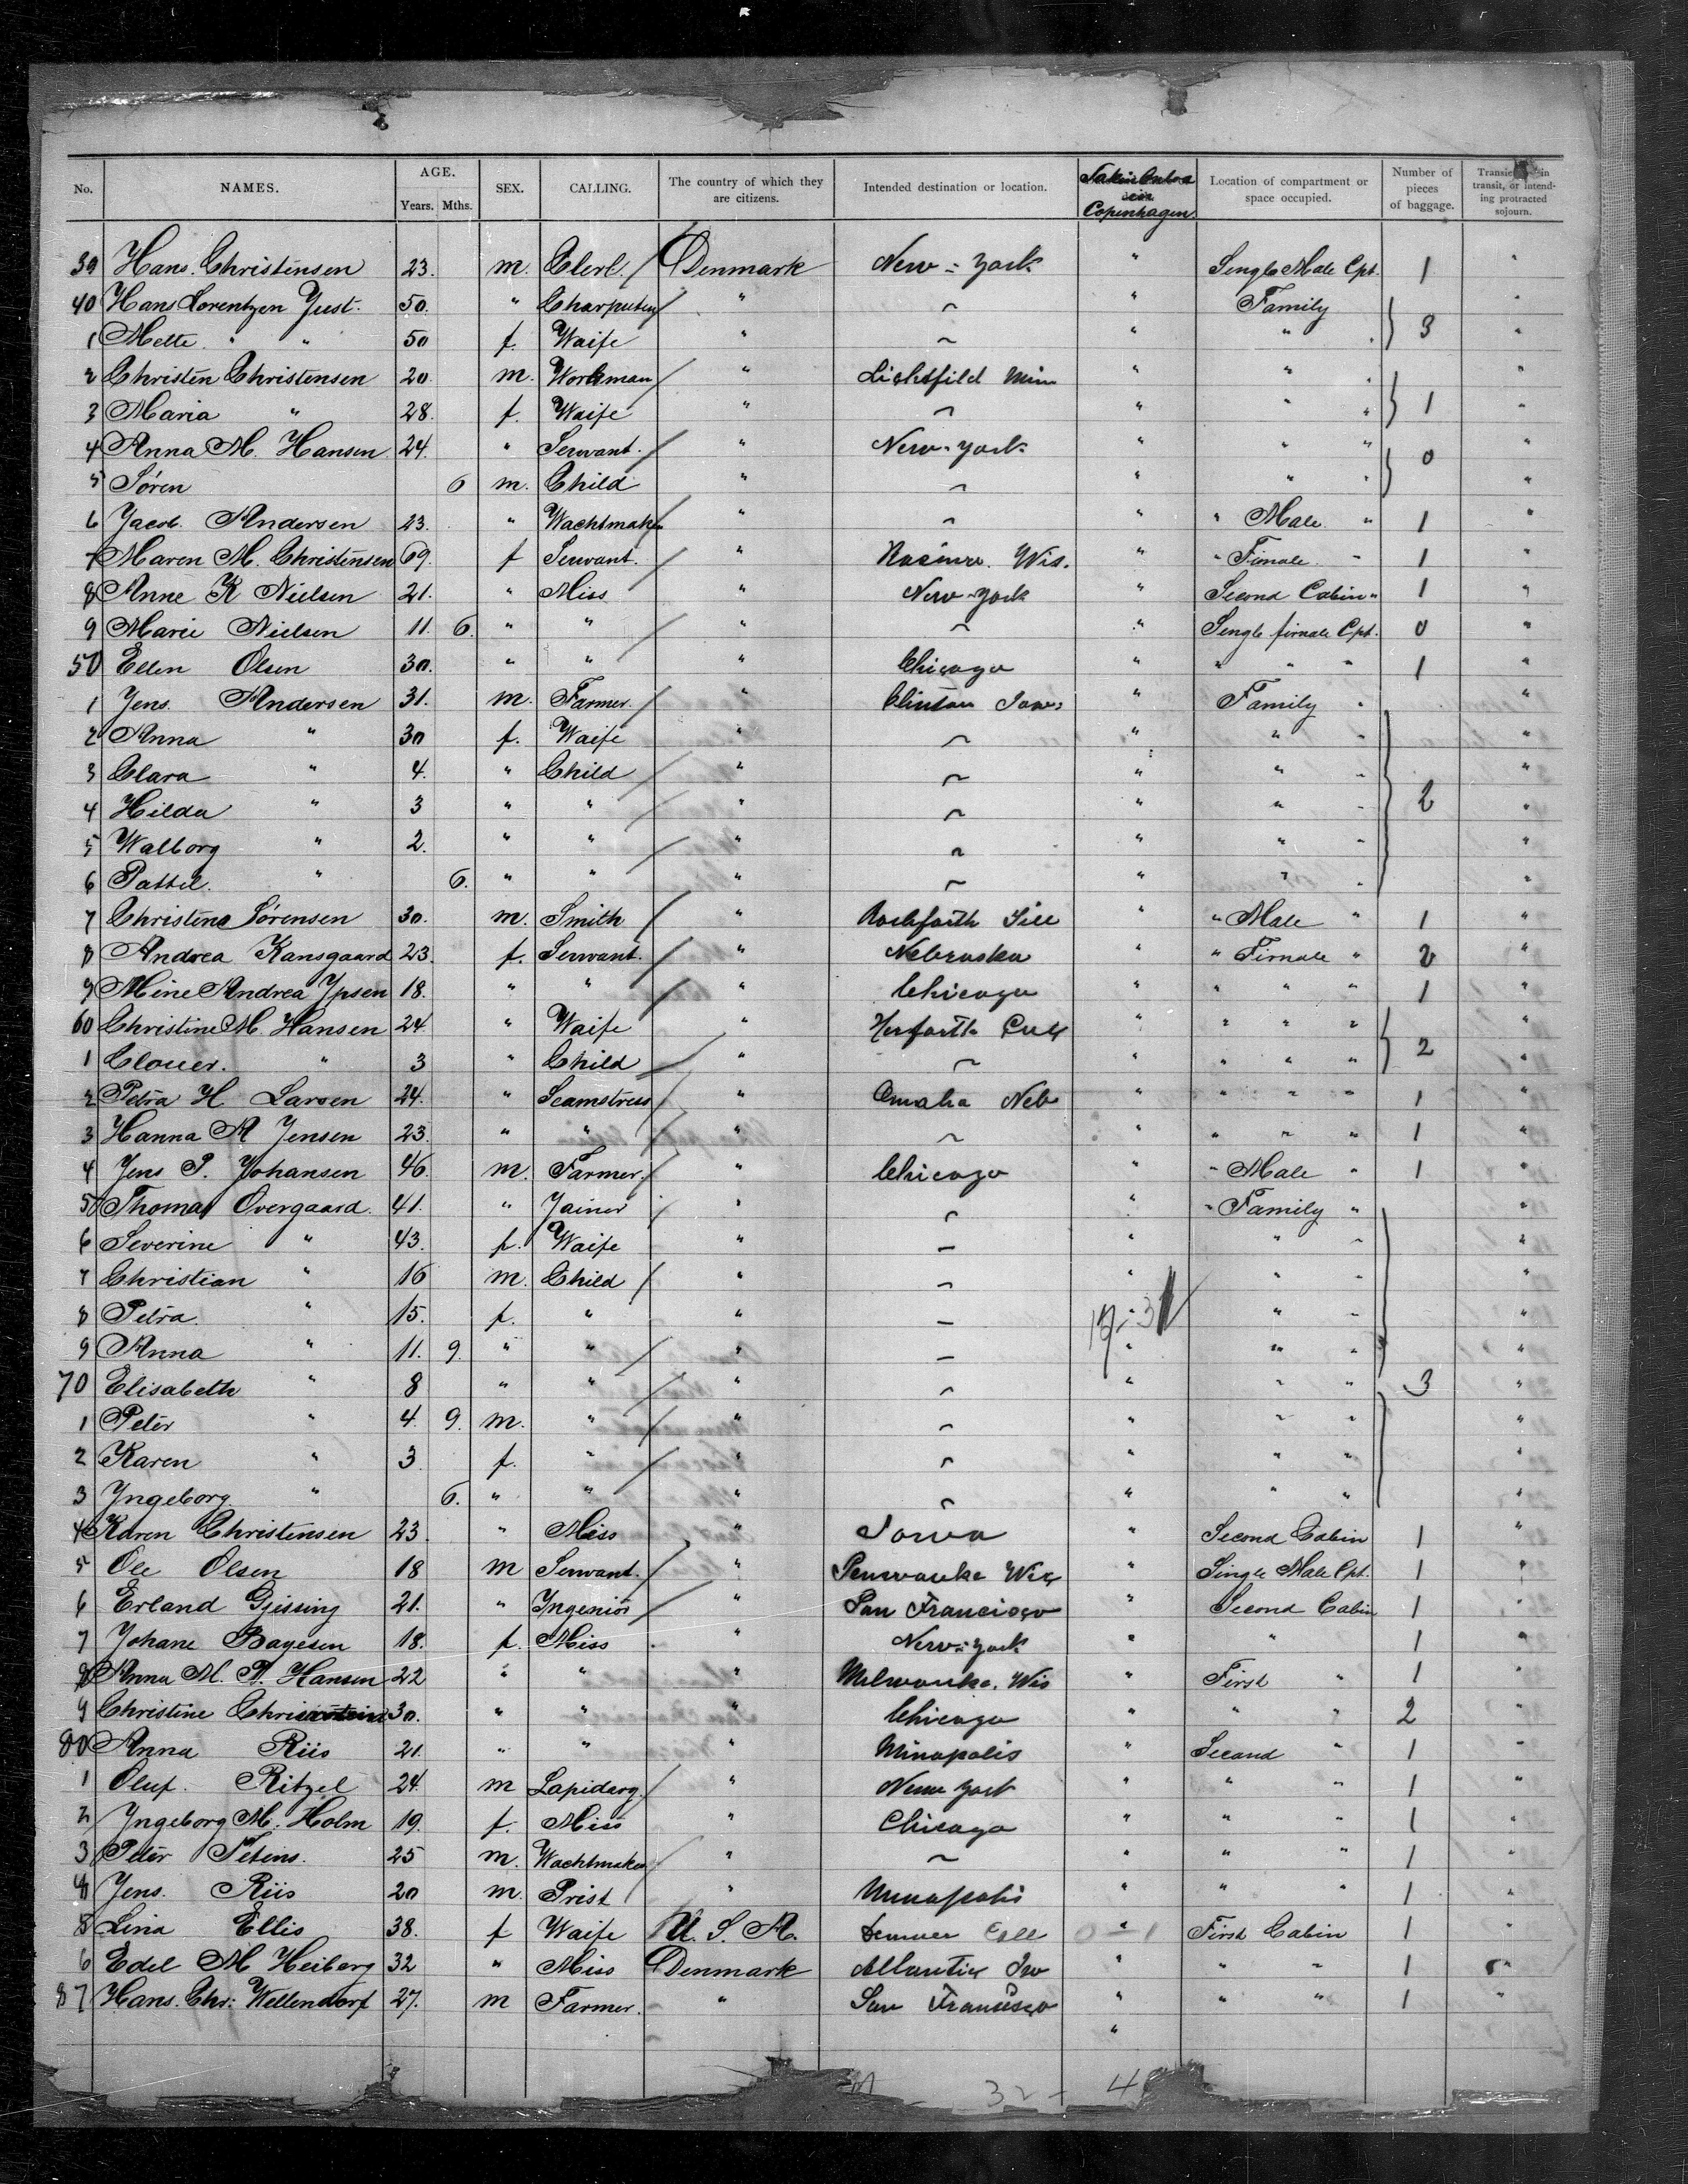 No. NAMES. AGE. Years. Mths. SEX. CALLING. The country of which they are citizens. Intended destination or location. Copenhagen. Location of compartment or space occupied. Number of pieces of baggage. transit, or intending protracted sojourn.
39 Hans. Christensen 23. m. Clerk. Denmark New-York " Single Male Cpt. 1 "
40 Hans Lorentzen Just. 50. " Charputen " ~ " Family "
1 Mette. " " 50 f. Waife " ~ " " 3 "
2 Christen Christensen 20. m. Workman " Lichtfild Min " " "
3 Maria " 28. f. Waife " ~ " " " 1 "
4 Anna M. Hansen 24. " Servant. " New-York " " " "
5 Sören 6 m. Child " ~ " " 0 "
6 Jacob. Andersen 23. " Wachtmaker " ~ " " Male " 1 "
7 Maren M. Christensen 69. f Servant. " Rasinre. Wis. " " Fimale " 1 "
8 Anne K Nielsen 21. " Miss " New-York " Second Cabin " 1 "
9 Marie Nielsen 11. 6. " " " ~ " Single fimale Cpt. 0 "
50 Ellen Olsen 30. " " " Chicago " " " " 1 "
1 Jens. Andersen 31. m. Farmer. " Clinton Iowa " Family " "
2 Anna " 30 f. Waife " ~ " " " "
3 Clara " 4. " Child " ~ " " " "
4 Hilda " 3 " " " ~ " " " 2 "
5 Walborg " 2. " " " ~ " " " "
6 Pattel. " 6. " " " ~ " " " "
7 Christene Sörensen 30. m. Smith " Rockforth Ill " " Male " 1 "
8 Andrea Kansgaard 23. f. Servant. " Nebraska " " Fimale " 2 "
9 Mine Andrea Ypsen 18. " " " Chicago " " " " 1 "
60 Christine M. Hansen 24 " Waife " " " " " "
1 Clouer. " 3 " Child " ~ " " " " 2 "
2 Petra H Larsen 24. " Seamstress " Omaha Neb " " " " 1 "
3 Hanna M Jensen 23. " " " ~ " " " " 1 "
4 Jens P. Johansen 46. m. Farmer. " Chicago " " Male " 1 "
5 Thomas Overgaard. 41. " Jainer " ~ " " Family " "
6 Severine " 43. f. Waife " ~ " " " "
7 Christian " 16 m. Child " ~ " " " "
8 Petra. " 15. f. " " ~ " " " "
9 Anna " 11. 9. " " " ~ " " " "
70 Elisabeth " 8 " " " ~ " " " 3 "
1 Peter " 4 9. m. " " ~ " " " "
2 Karen " 3 f. " " ~ " " " "
3 Yngeborg. " 6. " " " ~ " " " "
4 Karen Christensen 23. " Miss " Iowa " Second Cabin 1 "
5 Ole Olsen 18 m Servant. " Penwauke Wis " Single Male Cpt. 1 "
6 Erland Gjessing 21. " Yngeniör " San Francisco " Second Cabin 1 "
7 Johane Bayesen 18. f. Miss " New-York " " 1 "
8 Anna M. P. Hansen 22 " " " Milwauke. Wis " First " 1 "
9 Christine 30. " " " Chicago " " " 2 "
80 Anna Riis 21. " " " Minapolis " Secand " 1 "
1 Oluf. Ritzel 24. m Lapidarg. " New York " " " 1 "
2 Yngeborg M. Holm 19. f. Miss " Chicago " " " 1 "
3 Peter Tetens. 25 m. Wachtmaker " ~ " " " 1 "
4 Jens. Riis 20 m. Prist " Minapolis " " " 1 "
8 Lina Ellis 38. f Waife U. S. A. Denver Coll 0-1 " First Cabin 1 "
6 Edel M Heiberg 32 " Miss Denmark Atlantic Iw " " " 1 "
87 Hans. Chr: Wellendorf 27. m Farmer. " San Francisco " " " 1 "
"
32 - 4